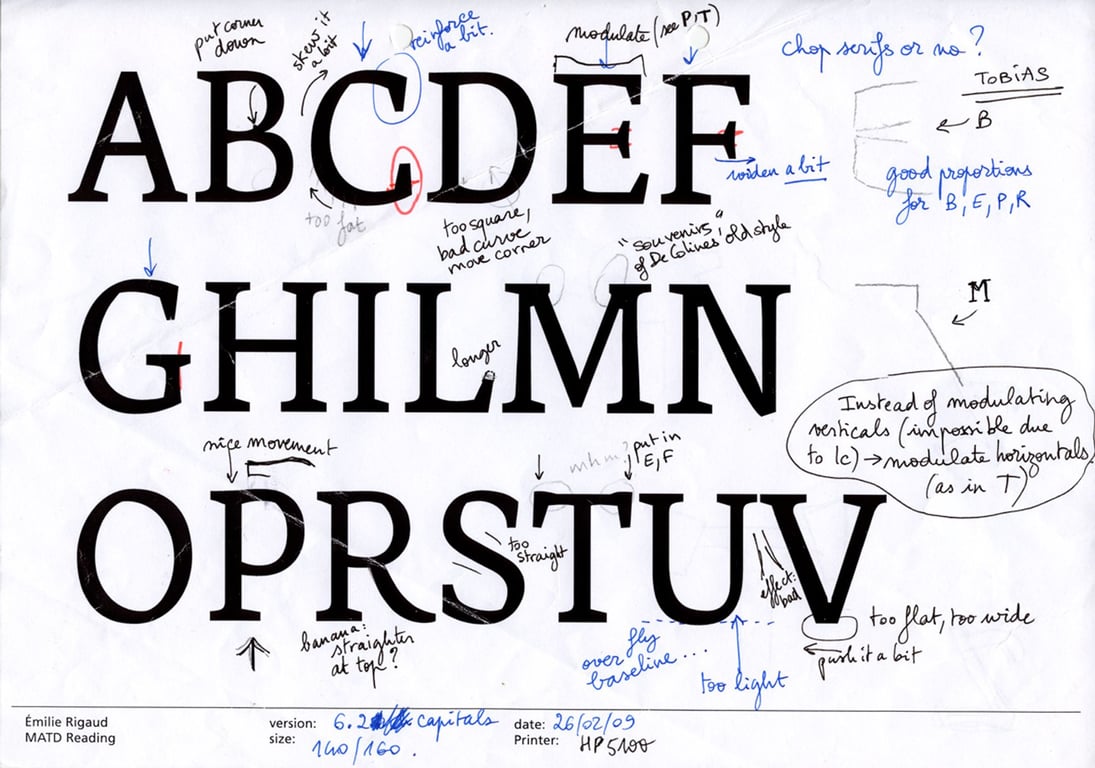 put corner
down
skew it
a bit
reinforce
a bit.
modulate (see P, T)
chop serifs or no?
TOBIAS
B
ABCDEF
widen a bit
good proportions
for B, E, P, R
too fat
too square,
bad curve
move corner
"souvenirs"
of De Colines old style
GHILMN
longer
M
Instead of modulating
verticals (impossible due
to lc) → modulate horizontals
(as in T)
nice movement
mhm?
put in
E, F
OPRSTUV
too
straight
effect:
bad
banana:
straighter
at top?
over fly
baseline...
too light
too flat, too wide
push it a bit
Émilie Rigaud
MATD Reading
version: 6.2 capitals
size: 140/160.
date: 26/02/09
Printer: HP5100